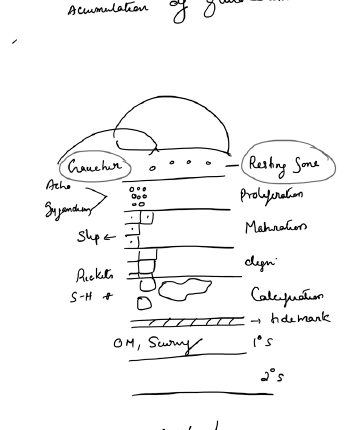 Accumulation of
Gaucher
Resting Zone
Proliferation
Maturation
Slip ←
degn
Rickets
S-H
Calcification
→ tidemark
OM, Scurvy
1° S
2° S